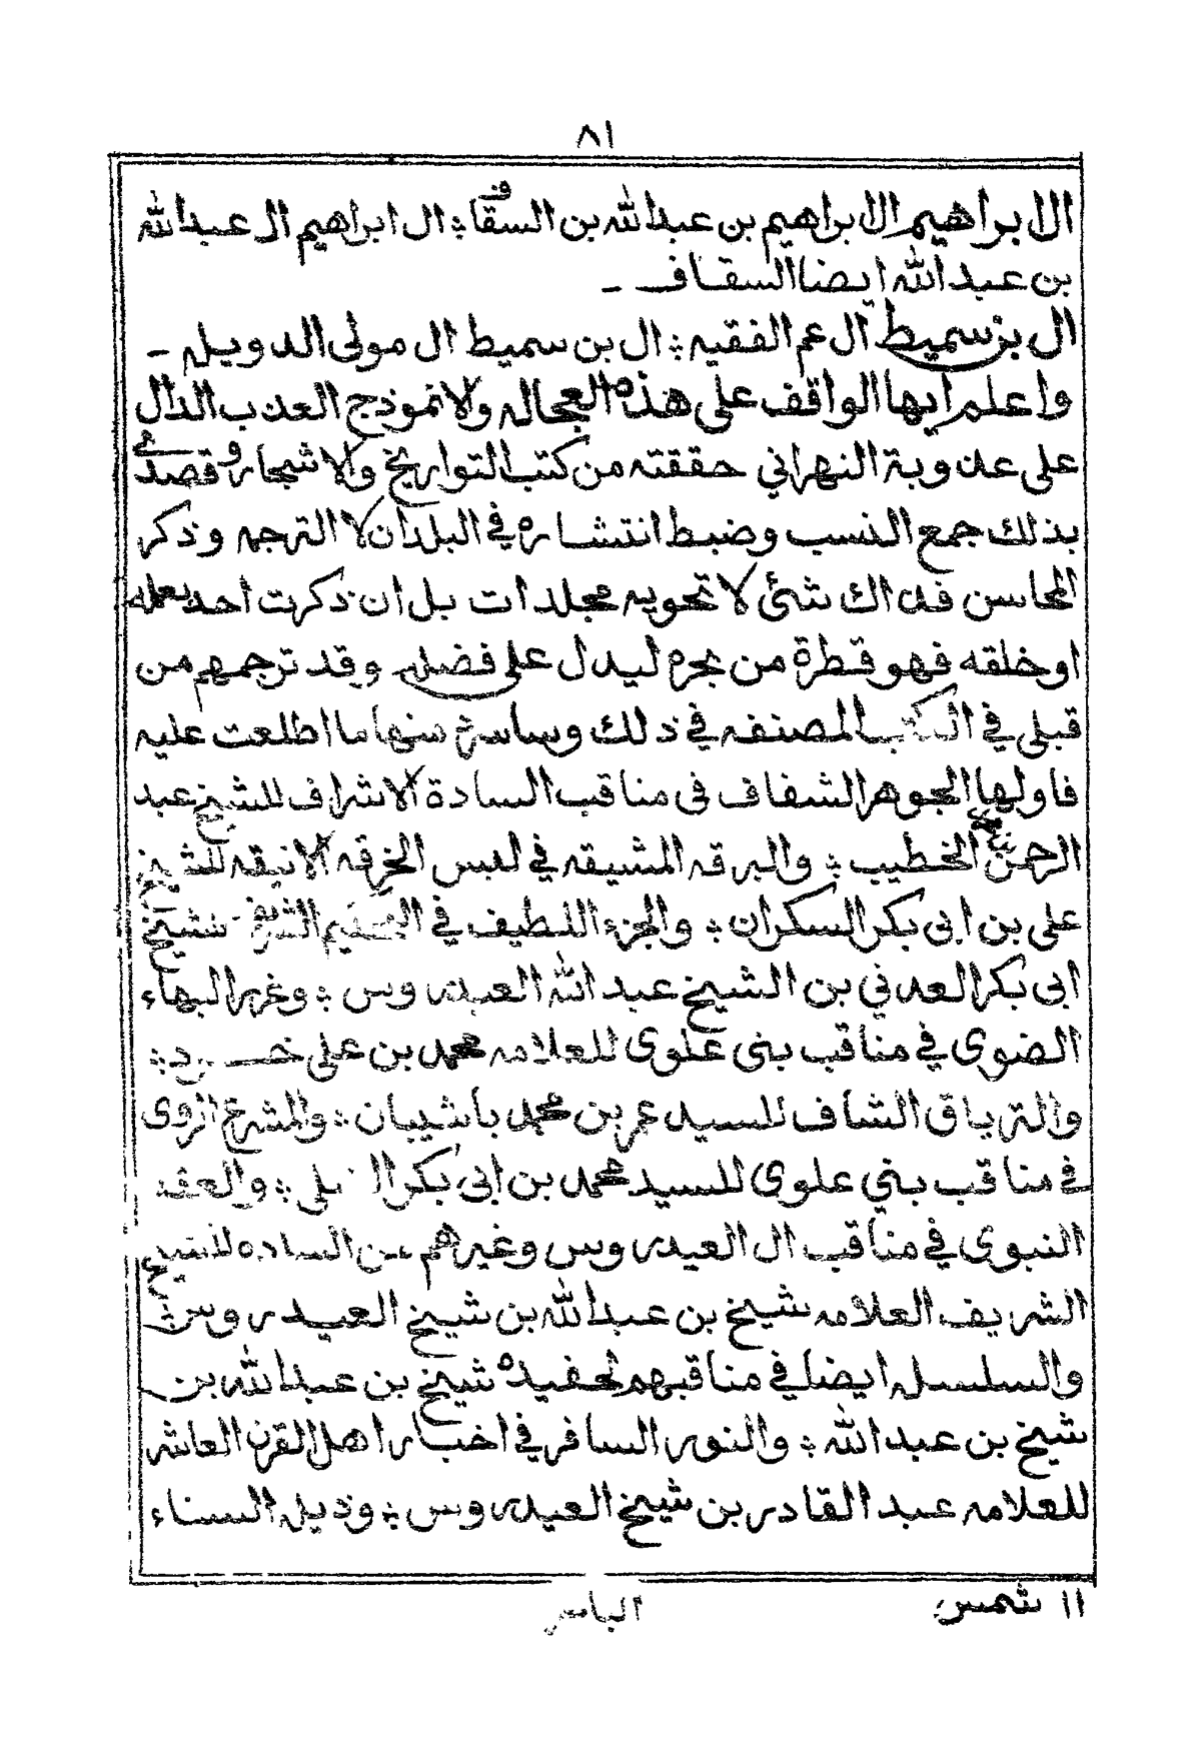 ٨١
ال ابراهيم ال ابراهيم بن عبدالله بن السقاف ؛ ال ابراهيم ال عبدالله
بن عبدالله ايضا السقاف -
ال بن سميط ال عم الفقيه ؛ ال بن سميط ال مولى الدويله -
واعلم ايها الواقف على هذه العجاله والانموذج العذب الدال
على عذوبة النهر اني حققته من كتب التواريخ والاشجار وقصدي
بذلك جمع النسب وضبط انتشاره في البلدان لا الترجمه وذكر
المحاسن فذاك شئ لا تحويه مجلدات بل ان ذكرت احد بعمله
او خلقه فهو قطرة من بحره ليدل على فضله وقد ترجمهم من
قبلي في الكتب المصنفه في ذلك وساسرد منها ما اطلعت عليه
فاولها الجوهر الشفاف فى مناقب السادة الاشراف للشيخ عبد
الرحمن الخطيب ؛ والبرقه المشيقه في لبس الخرقه الانيقه للشيخ
على بن ابى بكر السكران ؛ والجزء اللطيف في التحكيم الشريف للشيخ
ابى بكر العدني بن الشيخ عبد الله العيدروس ؛ وغرر البهاء
الضوى في مناقب بنى علوى للعلامه محمد بن على خرد ؛
والترياق الشاف للسيد عمر بن محمد باشيبان ؛ والمشرع الروى
في مناقب بني علوى للسيد محمد بن ابى بكر الشلى ؛ والعقد
النبوى في مناقب ال العيدروس وغيرهم من الساده للشيخ
الشريف العلامه شيخ بن عبدالله بن شيخ العيدروس ؛
والسلسله ايضا في مناقبهم لحفيده شيخ بن عبدالله بن
شيخ بن عبدالله ؛ والنور السافر في اخبار اهل القرن العاشر
للعلامه عبد القادر بن شيخ العيدروس ؛ وذيله السناء
١١ شمس
الباسر